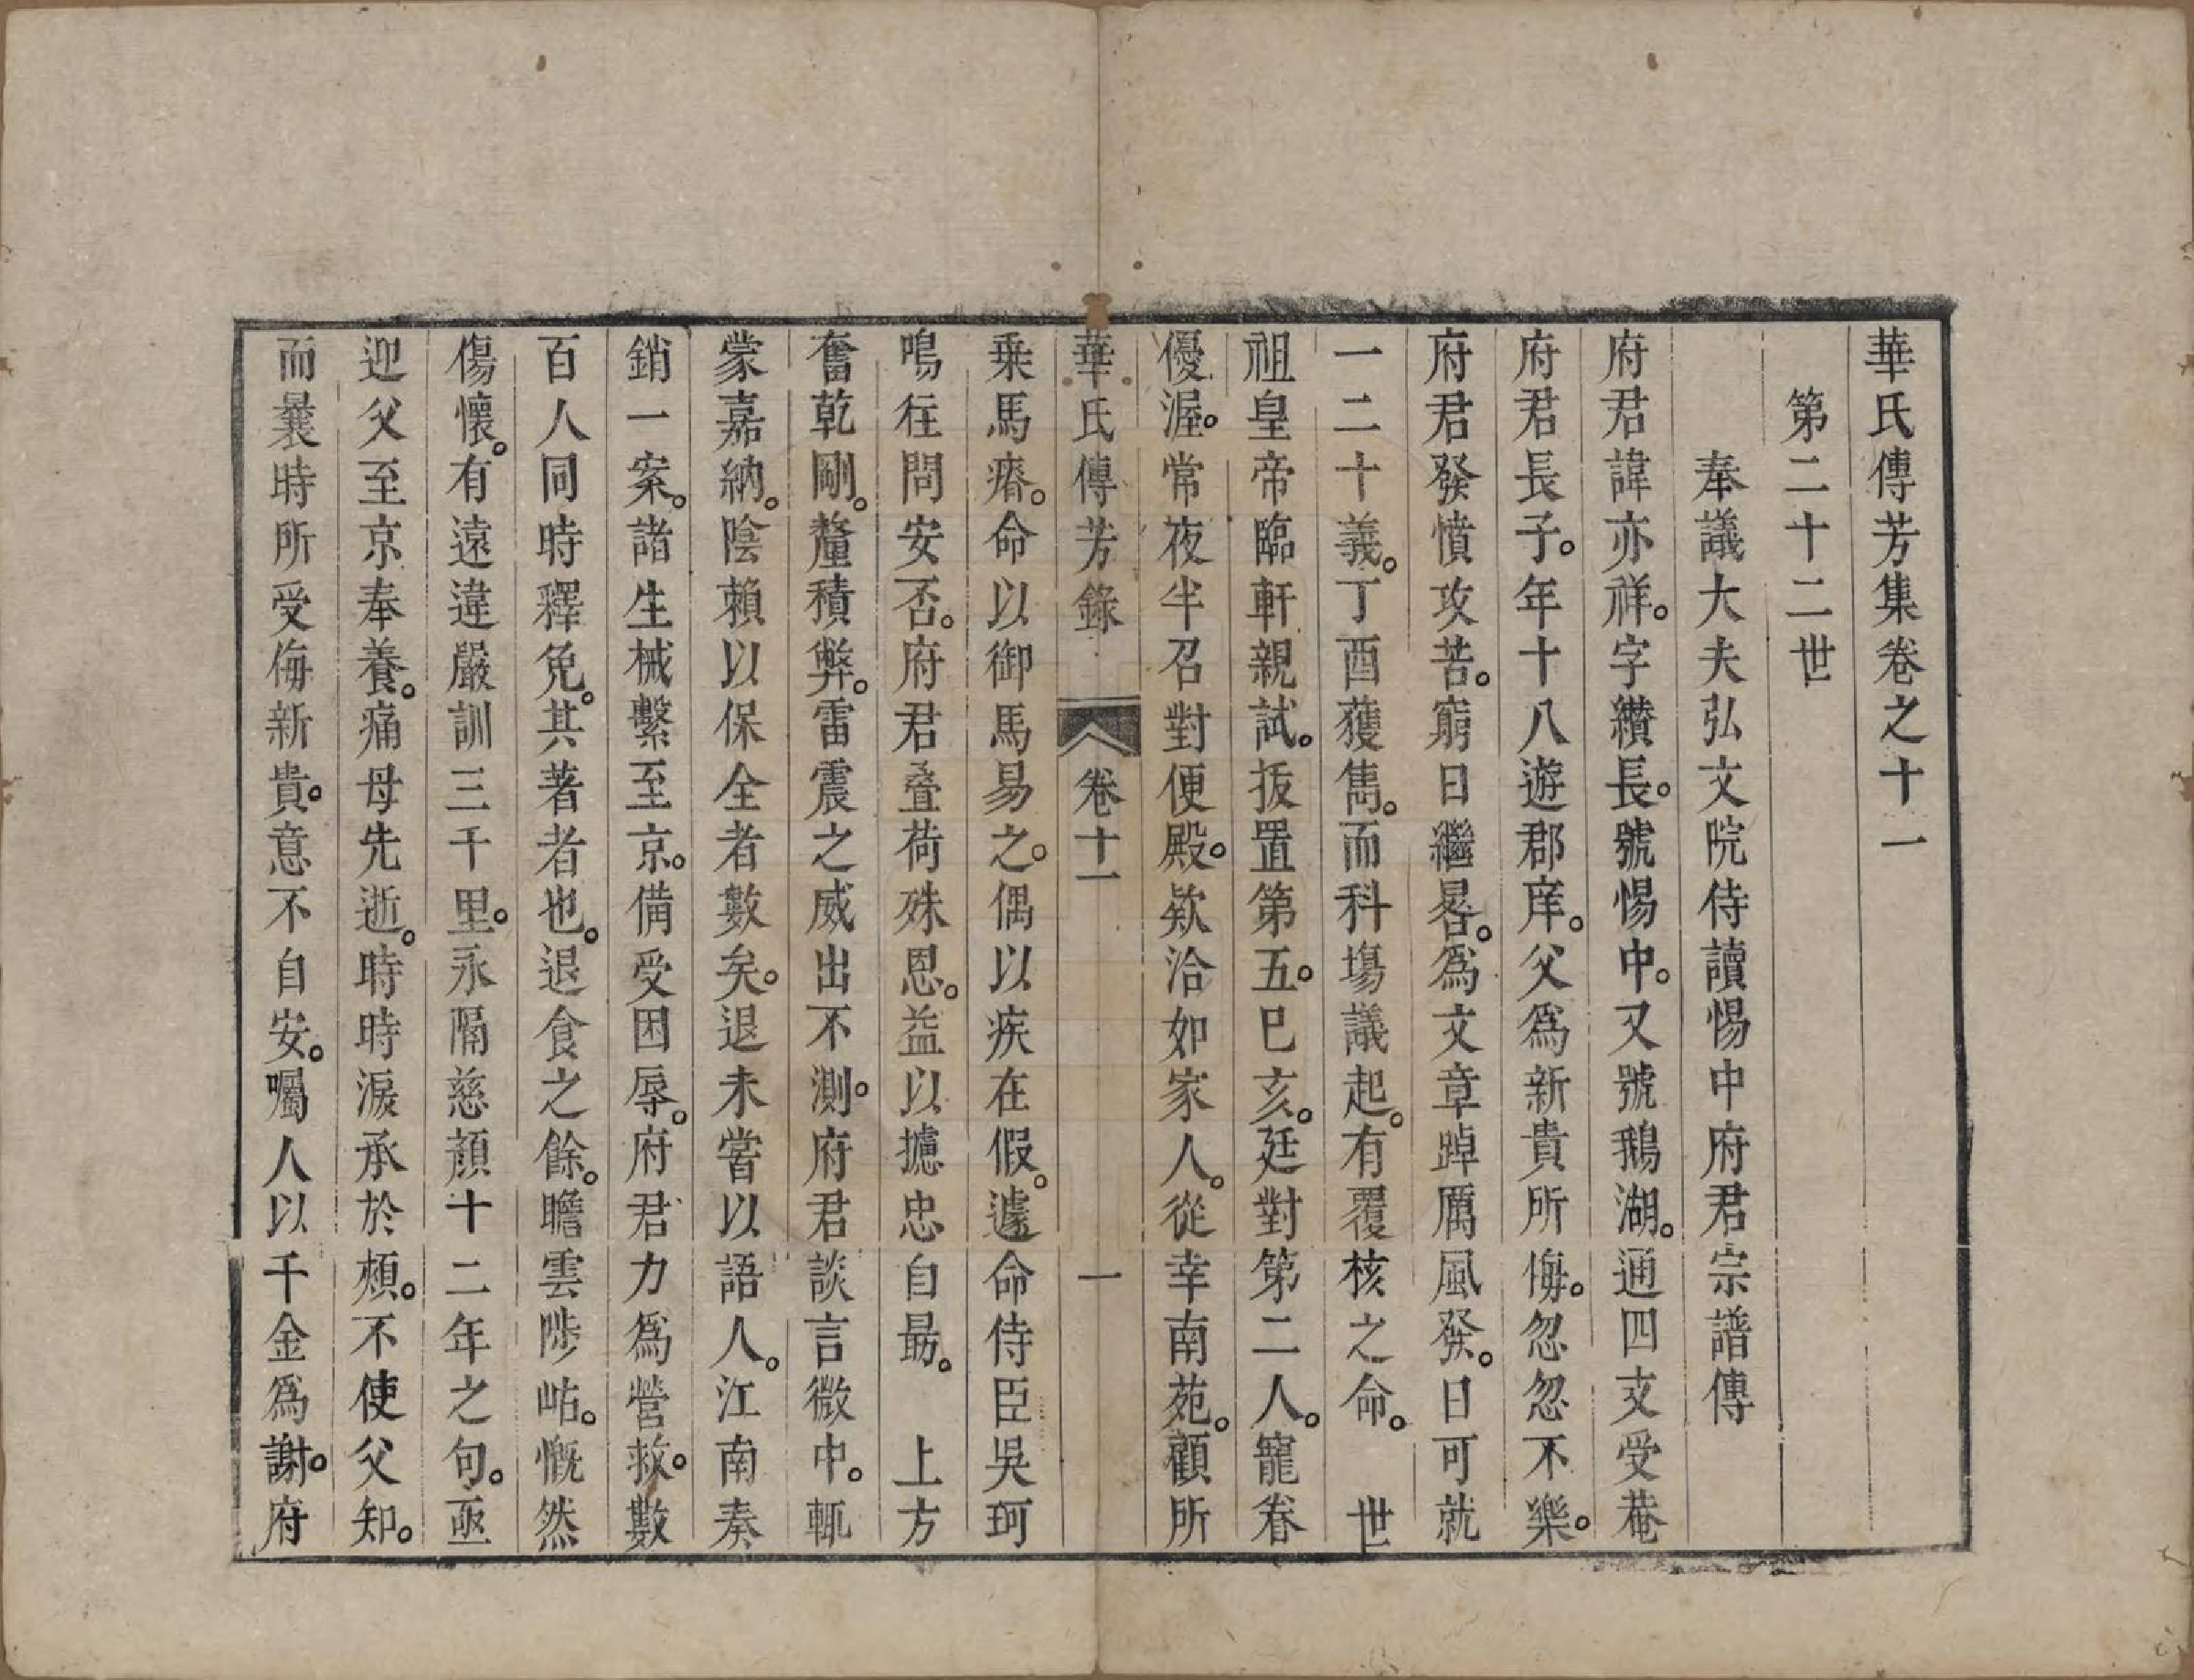 華氏傳芳集卷之十一
第二十二世
奉議大夫弘文院侍讀惕中府君宗譜傳
府君諱亦祥。字纘長。號惕中。又號鵝湖。通四支受菴
府君長子。年十八遊郡庠。父爲新貴所侮。忽忽不樂。
府君發憤攻苦。窮日繼晷。爲文章踔厲風發。日可就
一二十義。丁酉獲雋。而科塲議起。有覆核之命。 世
祖皇帝臨軒親試。拔置第五。巳亥。廷對第二人。寵眷
優渥。常夜半召對便殿。欵洽如家人。從幸南苑。顧所
華氏傳芳錄 卷十一 一
乗馬瘠。命以御馬易之。偶以疾在假。遽命侍臣吳珂
鳴往問安否。府君叠荷殊恩。益以攄忠自勗。 上方
奮乾剛。釐積弊。雷震之威出不測。府君談言微中。輒
蒙嘉納。陰賴以保全者數矣。退未嘗以語人。江南奏
銷一案。諸生械繫至京。備受困辱。府君力爲營救。數
百人同時釋免。其著者也。退食之餘。瞻雲陟岵。慨然
傷懷。有遠違嚴訓三千里。永隔慈顔十二年之句。亟
迎父至京奉養。痛母先逝。時時淚承於頰。不使父知。
而曩時所受侮新貴。意不自安。囑人以千金爲謝。府